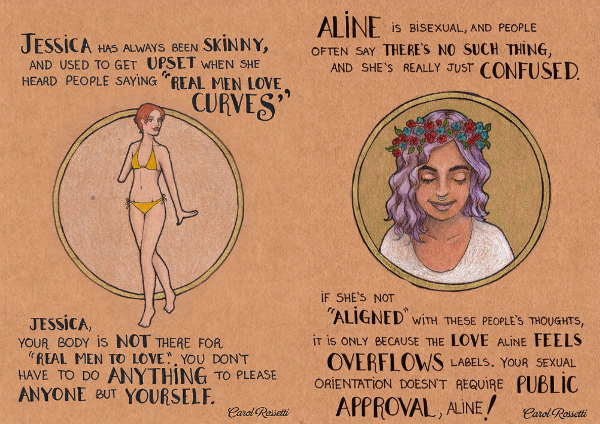 JESSICA HAS ALWAYS BEEN SKINNY,
AND USED TO GET UPSET WHEN SHE
HEARD PEOPLE SAYING "REAL MEN LOVE
CURVES"
JESSICA,
YOUR BODY IS NOT THERE FOR
"REAL MEN TO LOVE". YOU DON'T
HAVE TO DO ANYTHING TO PLEASE
ANYONE BUT YOURSELF.
Carol Rossetti
ALINE IS BISEXUAL, AND PEOPLE
OFTEN SAY THERE'S NO SUCH THING,
AND SHE'S REALLY JUST CONFUSED.
IF SHE'S NOT
"ALIGNED" WITH THESE PEOPLE'S THOUGHTS,
IT IS ONLY BECAUSE THE LOVE ALINE FEELS
OVERFLOWS LABELS. YOUR SEXUAL
ORIENTATION DOESN'T REQUIRE PUBLIC
APPROVAL, ALINE!
Carol Rossetti